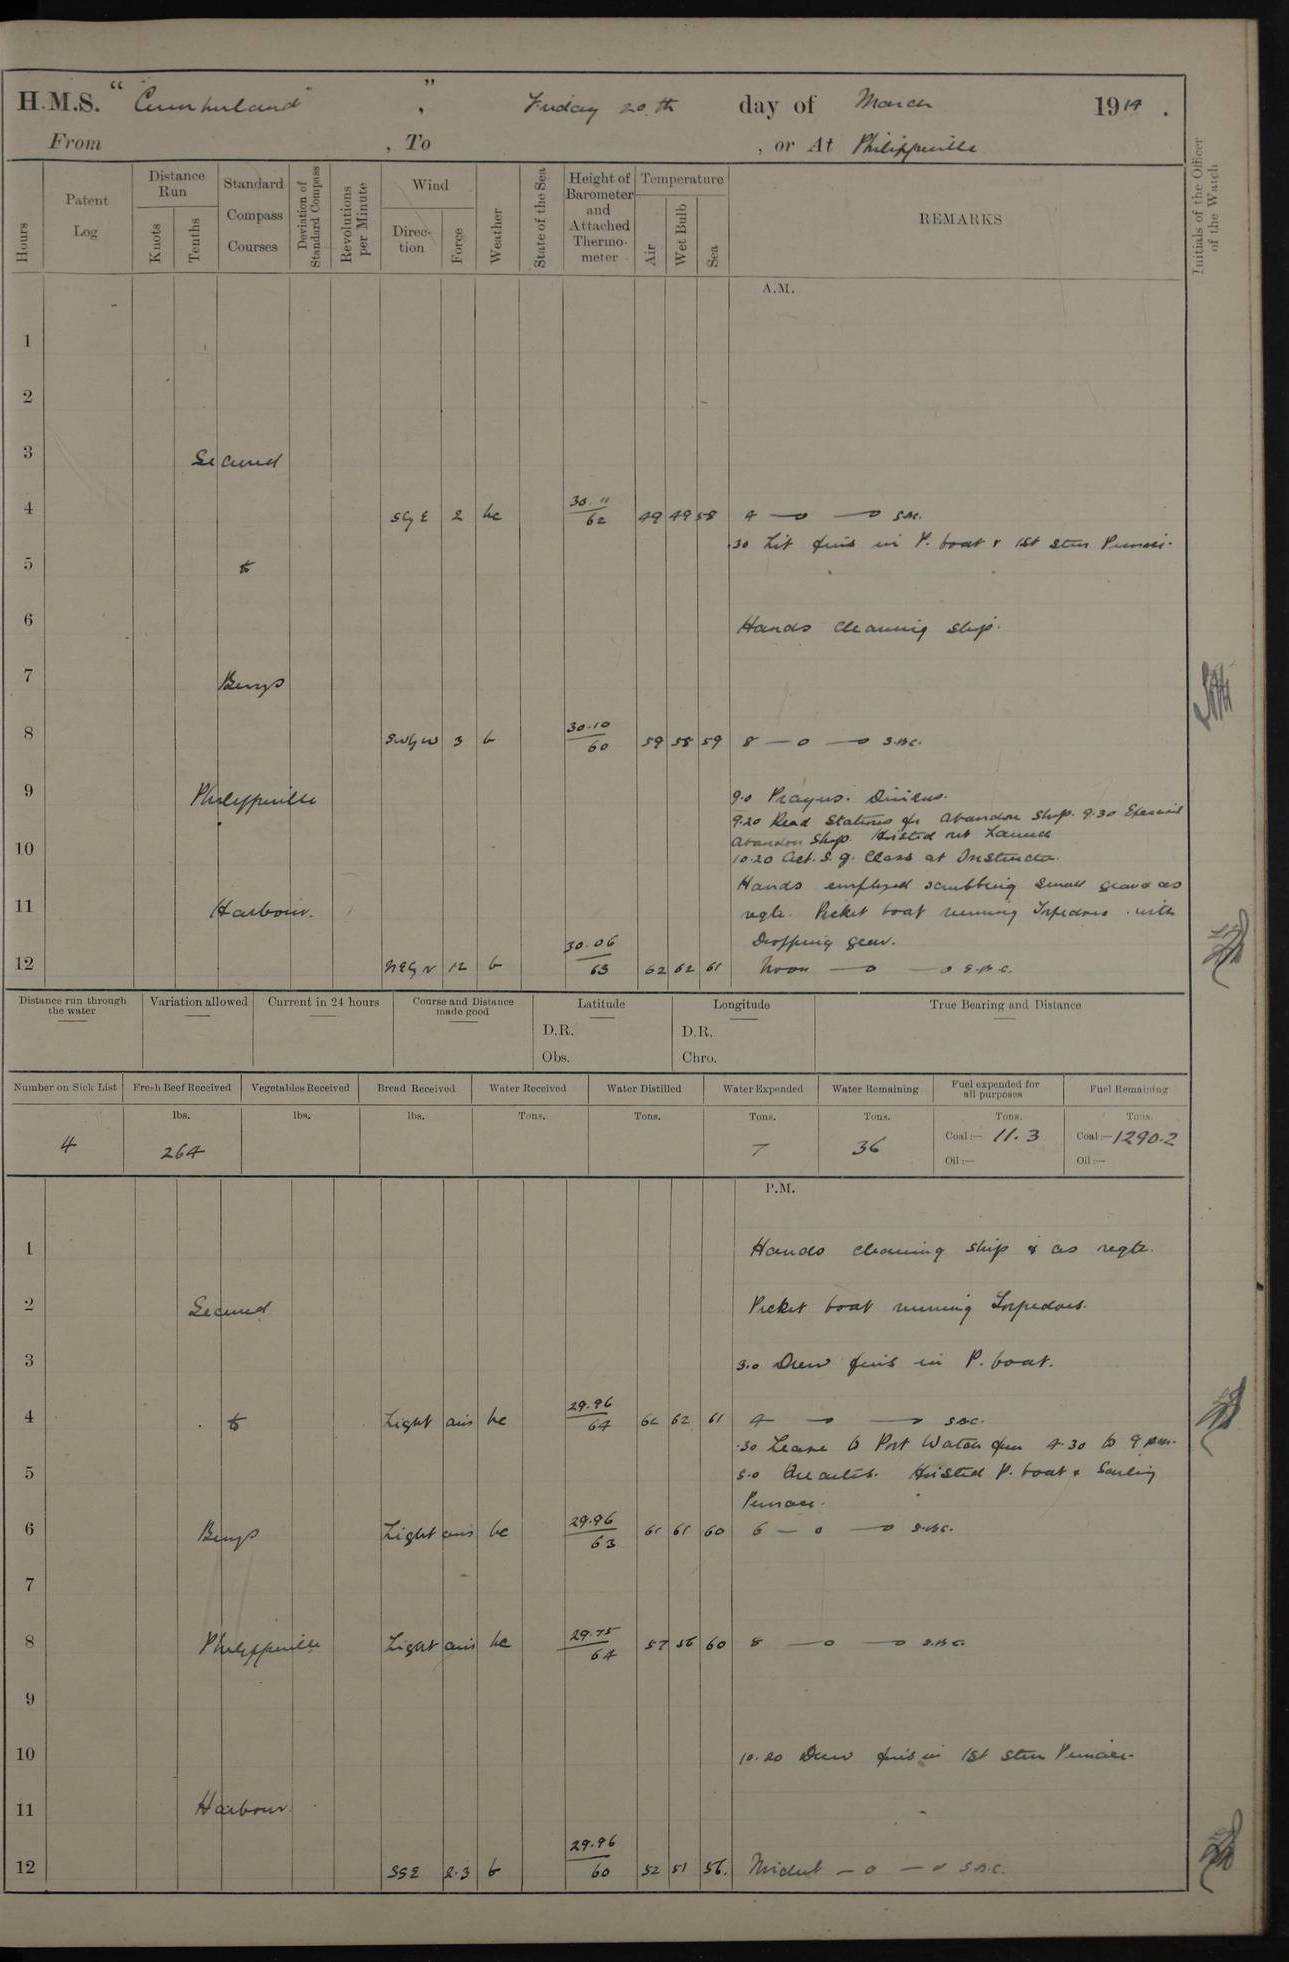 H.M.S. "Cumberland", Friday 20th day of March 1914.
From , To , or At Philippeville
Hours
Patent Log
Distance Run
Knots
Tenths
Standard Compass Courses
Deviation of Standard Compass
Revolutions per Minute
Wind
Direction
Force
Weather
State of the Sea
Height of Barometer and Attached Thermometer
Temperature
Air
Wet Bulb
Sea
REMARKS
Initials of the Officer of the Watch
A.M.
1
2
3 Secured
4 SbyE 2 bc 30.11 62 49 49 58 4 —o —o SBC.
.30 Lit fires in P. boat & 1st Stm Pinnace.
5 to
6 Hands cleaning ship.
7 Buoys
8 SWbyW 3 b 30.10 60 59 58 59 8 —o —o SBC.
9 Philippeville 9.0 Prayers. Divisions.
9.20 Read Stations for Abandon Ship. 9.30 Exercised
Abandon Ship. Hoisted out Launch
10 10.20 Act. S.G. Class at Instruction.
Hands employed scrubbing small gear & as
11 Harbour. reqte. Picket boat running Torpedoes with
Dropping gear.
12 NEbyN 1.2 b 30.06 63 62 62 61 Noon —o —o S.B.C.
Distance run through the water
Variation allowed
Current in 24 hours
Course and Distance made good
Latitude
D.R.
Obs.
Longitude
D.R.
Chro.
True Bearing and Distance
Number on Sick List
Fresh Beef Received
Vegetables Received
Bread Received
Water Received
Water Distilled
Water Expended
Water Remaining
Fuel expended for all purposes
Fuel Remaining
lbs. lbs. lbs. Tons. Tons. Tons. Tons. Tons. Tons.
4 264 7 36 Coal:— 11.3 Coal:—1290.2
Oil:— Oil:—
P.M.
1 Hands cleaning ship & as reqte.
2 Secured Picket boat running Torpedoes.
3 3.0 Drew fires in P. boat.
4 to Light airs bc 29.96 64 62 62 61 4 —o —o SBC.
.30 Leave to Port Watch from 4.30 to 9 p.m.
5 5.0 Quarters. Hoisted P. boat & Sailing
Pinnace.
6 Buoys Light airs bc 29.96 63 61 61 60 6 —o —o S.B.C.
7
8 Philippeville Light airs bc 29.75 64 57 56 60 8 —o —o S.B.C.
9
10 10.20 Drew fires in 1st Stm Pinnace.
11 Harbour.
12 SSE 2.3 b 29.96 60 52 51 56. Midnt —o —o S.B.C.